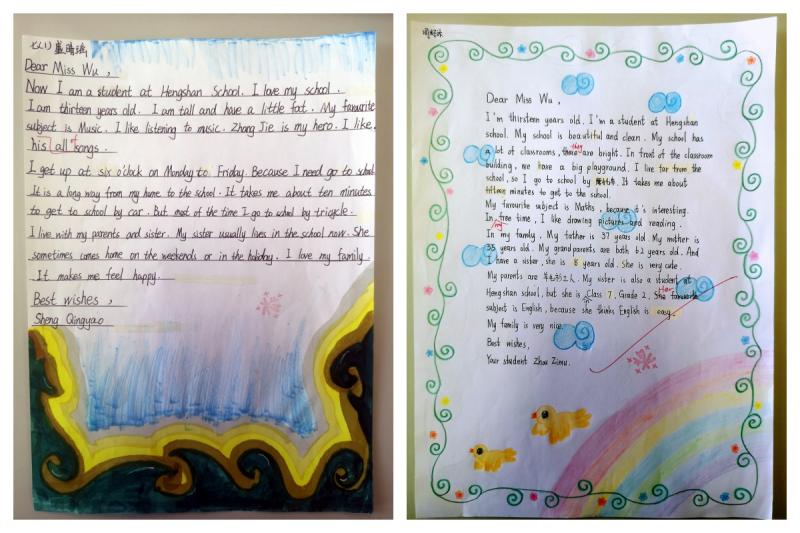 Dear Miss Wu,
Now I am a student at Hengshan School. I love my school.
I am thirteen years old. I am tall and have a little fat. My favourite
subject is Music. I like listening to music. Zhang Jie is my hero. I like
his all of songs.
I get up at six o'clock on Monday to Friday. Because I need go to school
It is a long way from my home to the school. It takes me about ten minutes
to get to school by car. But most of the time I go to school by tricycle.
I live with my parents and sister. My sister usually lives in the school now. She
sometimes comes home on the weekends or in the holiday. I love my family.
It makes me feel happy.
Best wishes,
Sheng Qingyao
Dear Miss Wu,
I'm thirsteen years old. I'm a student at Hengshan
school. My school is beautiful and clean. My school has
a lot of classrooms, they are bright. In front of the classroom
building, we have a big playground. I live far from the
school, so I go to school by It takes me about
fifteen minutes to get to the school.
My favourite subject is Maths, because it's interesting.
In my free time, I like drawing pictures and reading.
In my family, My father is 37 years old My mother is
35 years old. My grandparents are both 62 years old. And
I have a sister, she is 8 years old. She is very cute.
My parents are My sister is also a student at
Hengshan school, but she is Class 7, Grade 2, Her favourite
subject is English, because she thinks English is easy.
My family is very nice.
Best wishes,
Your student Zhou Zimu.